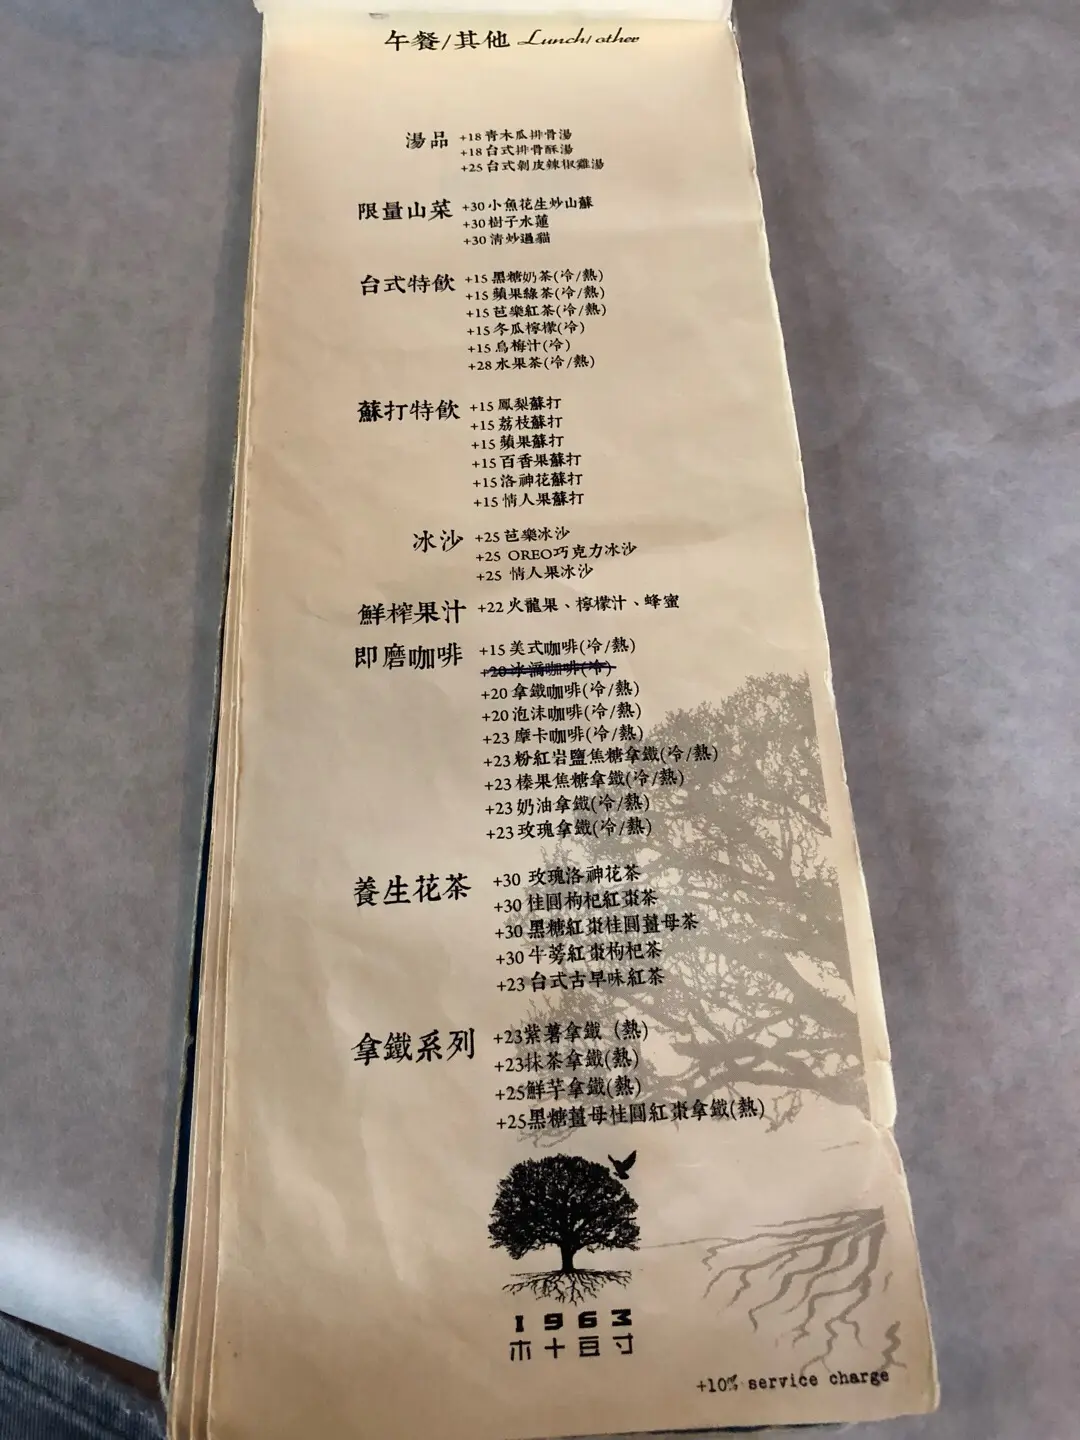 午餐/其他 Lunch/other
湯品 +18 青木瓜排骨湯
+18 台式排骨酥湯
+25 台式剝皮辣椒雞湯
限量山菜 +30 小魚花生炒山蘇
+30 樹子水蓮
+30 清炒過貓
台式特飲 +15 黑糖奶茶(冷/熱)
+15 蘋果綠茶(冷/熱)
+15 芭樂紅茶(冷/熱)
+15 冬瓜檸檬(冷)
+15 烏梅汁(冷)
+28 水果茶(冷/熱)
蘇打特飲 +15 鳳梨蘇打
+15 荔枝蘇打
+15 蘋果蘇打
+15 百香果蘇打
+15 洛神花蘇打
+15 情人果蘇打
冰沙 +25 芭樂冰沙
+25 OREO巧克力冰沙
+25 情人果冰沙
鮮榨果汁 +22 火龍果、檸檬汁、蜂蜜
即磨咖啡 +15 美式咖啡(冷/熱)
+20 冰滴咖啡(冷)
+20 拿鐵咖啡(冷/熱)
+20 泡沫咖啡(冷/熱)
+23 摩卡咖啡(冷/熱)
+23 粉紅岩鹽焦糖拿鐵(冷/熱)
+23 榛果焦糖拿鐵(冷/熱)
+23 奶油拿鐵(冷/熱)
+23 玫瑰拿鐵(冷/熱)
養生花茶 +30 玫瑰洛神花茶
+30 桂圓枸杞紅棗茶
+30 黑糖紅棗桂圓薑母茶
+30 牛蒡紅棗枸杞茶
+23 台式古早味紅茶
拿鐵系列 +23紫薯拿鐵（熱)
+23抹茶拿鐵(熱)
+25鮮芋拿鐵(熱)
+25黑糖薑母桂圓紅棗拿鐵(熱)
1963
木十豆寸
+10% service charge